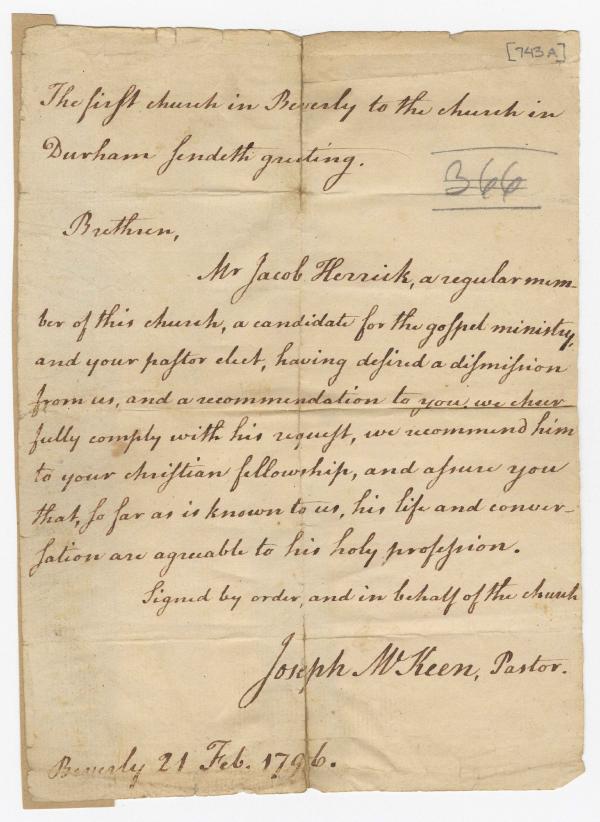 [743A]
The first church in Beverly to the church in
Durham sendeth greeting.
366
Brethren,
Mr Jacob Herrick, a regular mem-
ber of this church, a candidate for the gospel ministry,
and your pastor elect, having desired a dismission
from us, and a recommendation to you, we cheer-
fully comply with his request, we recommend him
to your christian fellowship, and assure you
that, so far as is known to us, his life and conver-
sation are agreable to his holy profession.
Signed by order, and in behalf of the church
Joseph McKeen, Pastor.
Beverly 21 Feb. 1796.